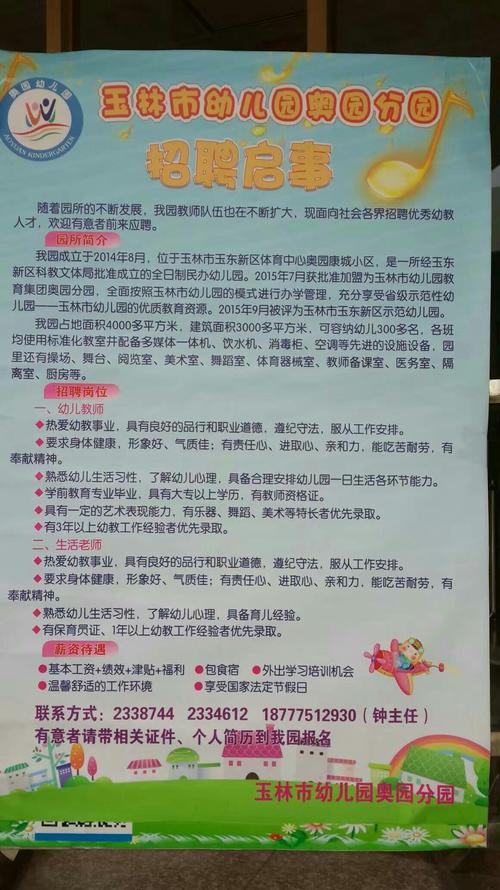 奥园幼儿园
AOYUAN KINDERGARTEN
玉林市幼儿园奥园分园
招聘启事
随着园所的不断发展，我园教师队伍也在不断扩大，现面向社会各界招聘优秀幼教
人才，欢迎有意者前来应聘。
园所简介
我园成立于2014年8月，位于玉林市玉东新区体育中心奥园康城小区，是一所经玉东
新区科教文体局批准成立的全日制民办幼儿园。2015年7月获批准加盟为玉林市幼儿园教
育集团奥园分园，全面按照玉林市幼儿园的模式进行办学管理，充分享受省级示范性幼
儿园——玉林市幼儿园的优质教育资源。2015年9月被评为玉林市玉东新区示范幼儿园。
我园占地面积4000多平方米，建筑面积3000多平方米，可容纳幼儿300多名，各班
均使用标准化教室并配备多媒体一体机、饮水机、消毒柜、空调等先进的设施设备，园
里还有操场、舞台、阅览室、美术室、舞蹈室、体育器械室、教师备课室、医务室、隔
离室、厨房等。
招聘岗位
一、幼儿教师
◆热爱幼教事业，具有良好的品行和职业道德，遵纪守法，服从工作安排。
◆要求身体健康，形象好、气质佳；有责任心、进取心、亲和力，能吃苦耐劳，有
奉献精神。
◆熟悉幼儿生活习性，了解幼儿心理，具备合理安排幼儿园一日生活各环节能力。
◆学前教育专业毕业，具有大专以上学历，有教师资格证。
◆具有一定的艺术表现能力，有乐器、舞蹈、美术等特长者优先录取。
◆有3年以上幼教工作经验者优先录取。
二、生活老师
◆热爱幼教事业，具有良好的品行和职业道德，遵纪守法，服从工作安排。
◆要求身体健康，形象好、气质佳；有责任心、进取心、亲和力，能吃苦耐劳，有
奉献精神。
◆熟悉幼儿生活习性，了解幼儿心理，具备育儿经验。
◆有保育员证、1年以上幼教工作经验者优先录取。
薪资待遇
●基本工资+绩效+津贴+福利 ●包食宿 ●外出学习培训机会
●温馨舒适的工作环境 ●享受国家法定节假日
联系方式：2338744 2334612 18777512930（钟主任）
有意者请带相关证件、个人简历到我园报名
玉林市幼儿园奥园分园